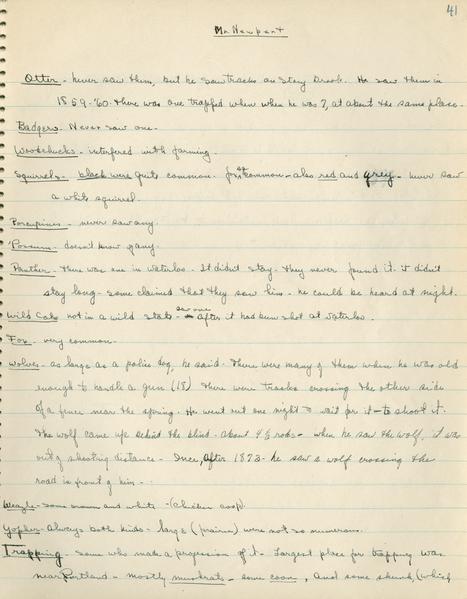 41
Mr. Newpert
Otter - never saw them, but he saw tracks on Stony Brook. He saw them in
1859-'60. There was one trapped when he was 7, at about the same place.
Badgers. Never saw one.
Woodchucks - interfered with farming.
Squirrels - black were quite common. fox common - also red and grey - never saw
a white squirrel.
Porcupines - never saw any.
'Possum - doesn't know of any.
Panther - there was one in Waterloo. It didn't stay - they never found it. it didn't
stay long - some claimed that they saw him - he could be heard at night.
Wild Cats not in a wild state - saw one after it had been shot at Waterloo.
Fox - very common -
Wolves - as large as a police dog, he said. There were many of them when he was old
enough to handle a gun (15) There were tracks crossing the other side
of a fence near the spring. He went out one night to wait for it - to shoot it.
The wolf came up behind the blind - about 4½ rods - when he saw the wolf, it was
out of shooting distance - Once, after 1873 - he saw a wolf crossing the
road in front of him -
Weazle - some brown and white - (chicken coop).
Gopher - always both kinds - large (prairie) were not so numerous.
Trapping - some who made a profession of it - Largest place for trapping was
near Portland - mostly muskrats - some coon, and some skunk, (which